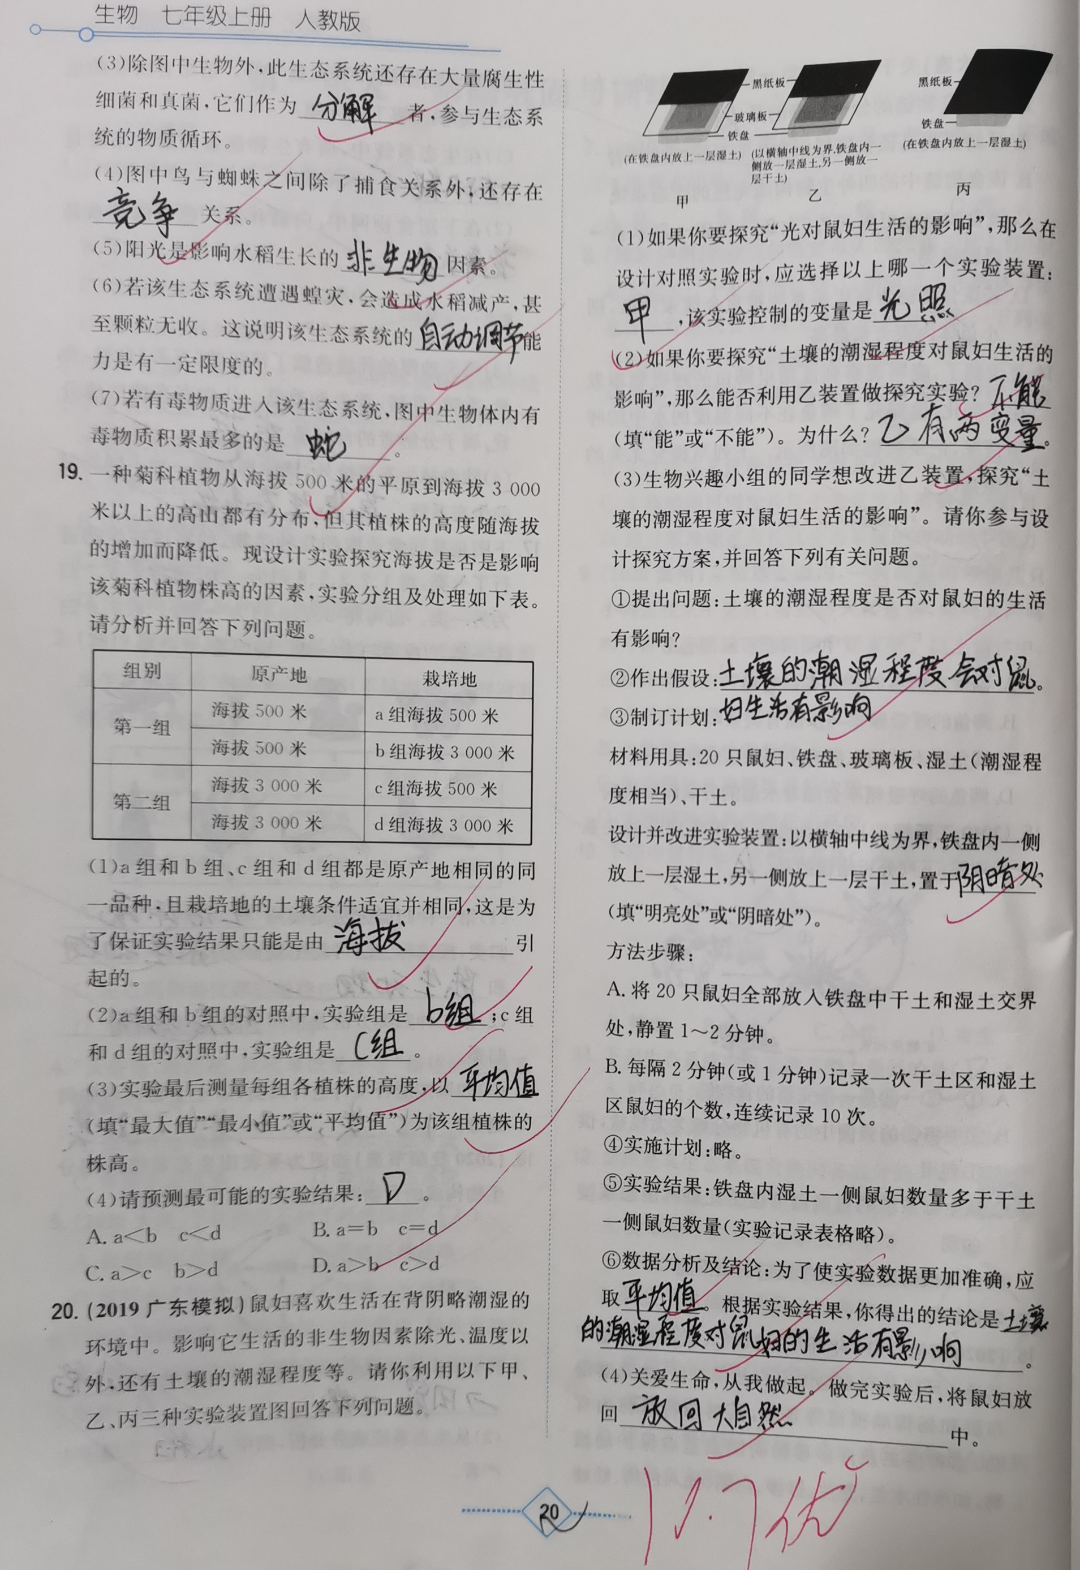 生物 七年级上册 人教版
(3)除图中生物外,此生态系统还存在大量腐生性
细菌和真菌,它们作为 分解 者,参与生态系
统的物质循环。
(4)图中鸟与蜘蛛之间除了捕食关系外,还存在
竞争 关系。
(5)阳光是影响水稻生长的 非生物 因素。
(6)若该生态系统遭遇蝗灾,会造成水稻减产,甚
至颗粒无收。这说明该生态系统的 自动调节 能
力是有一定限度的。
(7)若有毒物质进入该生态系统,图中生物体内有
毒物质积累最多的是 蛇 。
19. 一种菊科植物从海拔 500 米的平原到海拔 3 000
米以上的高山都有分布,但其植株的高度随海拔
的增加而降低。现设计实验探究海拔是否是影响
该菊科植物株高的因素,实验分组及处理如下表。
请分析并回答下列问题。
组别 原产地 栽培地
第一组 海拔 500 米 a 组海拔 500 米
海拔 500 米 b 组海拔 3 000 米
第二组 海拔 3 000 米 c 组海拔 500 米
海拔 3 000 米 d 组海拔 3 000 米
(1)a 组和 b 组、c 组和 d 组都是原产地相同的同
一品种,且栽培地的土壤条件适宜并相同,这是为
了保证实验结果只能是由 海拔 引
起的。
(2)a 组和 b 组的对照中,实验组是 b组 ;c 组
和 d 组的对照中,实验组是 C组 。
(3)实验最后测量每组各植株的高度,以 平均值
(填“最大值”“最小值”或“平均值”)为该组植株的
株高。
(4)请预测最可能的实验结果: D 。
A. a<b c<d B. a=b c=d
C. a>c b>d D. a>b c>d
20. (2019 广东模拟)鼠妇喜欢生活在背阴略潮湿的
环境中。影响它生活的非生物因素除光、温度以
外,还有土壤的潮湿程度等。请你利用以下甲、
乙、丙三种实验装置图回答下列问题。
黑纸板
玻璃板
铁盘
黑纸板
铁盘
(在铁盘内放上一层湿土)
(以横轴中线为界,铁盘内一
侧放一层湿土,另一侧放一
层干土)
(在铁盘内放上一层湿土)
甲 乙 丙
(1)如果你要探究“光对鼠妇生活的影响”,那么在
设计对照实验时,应选择以上哪一个实验装置:
甲 ,该实验控制的变量是 光照
(2)如果你要探究“土壤的潮湿程度对鼠妇生活的
影响”,那么能否利用乙装置做探究实验? 不能
(填“能”或“不能”)。为什么? 乙有两变量 。
(3)生物兴趣小组的同学想改进乙装置,探究“土
壤的潮湿程度对鼠妇生活的影响”。请你参与设
计探究方案,并回答下列有关问题。
①提出问题:土壤的潮湿程度是否对鼠妇的生活
有影响?
②作出假设: 土壤的潮湿程度会对鼠 。
③制订计划: 妇生活有影响
材料用具:20 只鼠妇、铁盘、玻璃板、湿土(潮湿程
度相当)、干土。
设计并改进实验装置:以横轴中线为界,铁盘内一侧
放上一层湿土,另一侧放上一层干土,置于 阴暗处
(填“明亮处”或“阴暗处”)。
方法步骤:
A. 将 20 只鼠妇全部放入铁盘中干土和湿土交界
处,静置 1~2 分钟。
B. 每隔 2 分钟(或 1 分钟)记录一次干土区和湿土
区鼠妇的个数,连续记录 10 次。
④实施计划:略。
⑤实验结果:铁盘内湿土一侧鼠妇数量多于干土
一侧鼠妇数量(实验记录表格略)。
⑥数据分析及结论:为了使实验数据更加准确,应
取 平均值 。根据实验结果,你得出的结论是 土壤
的潮湿程度对鼠妇的生活有影响 。
(4)关爱生命,从我做起。做完实验后,将鼠妇放
回 放回大自然 中。
20
优